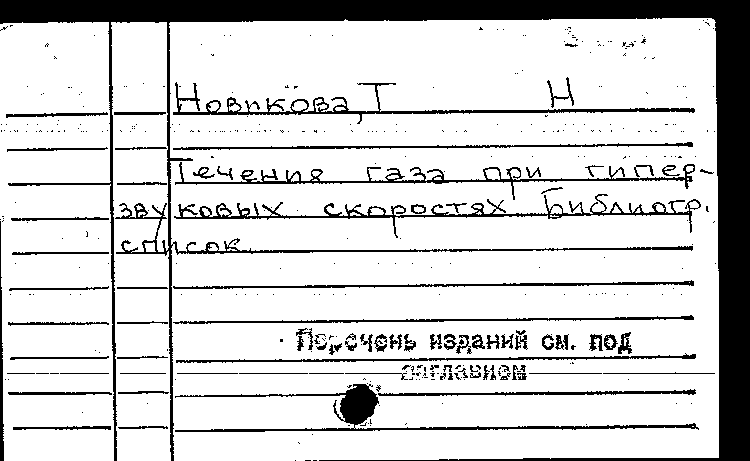 Новикова, Т Н
Течения газа при гипер-
звуковых скоростях Библиогр.
список.
Перечень изданий см. под
заглавием